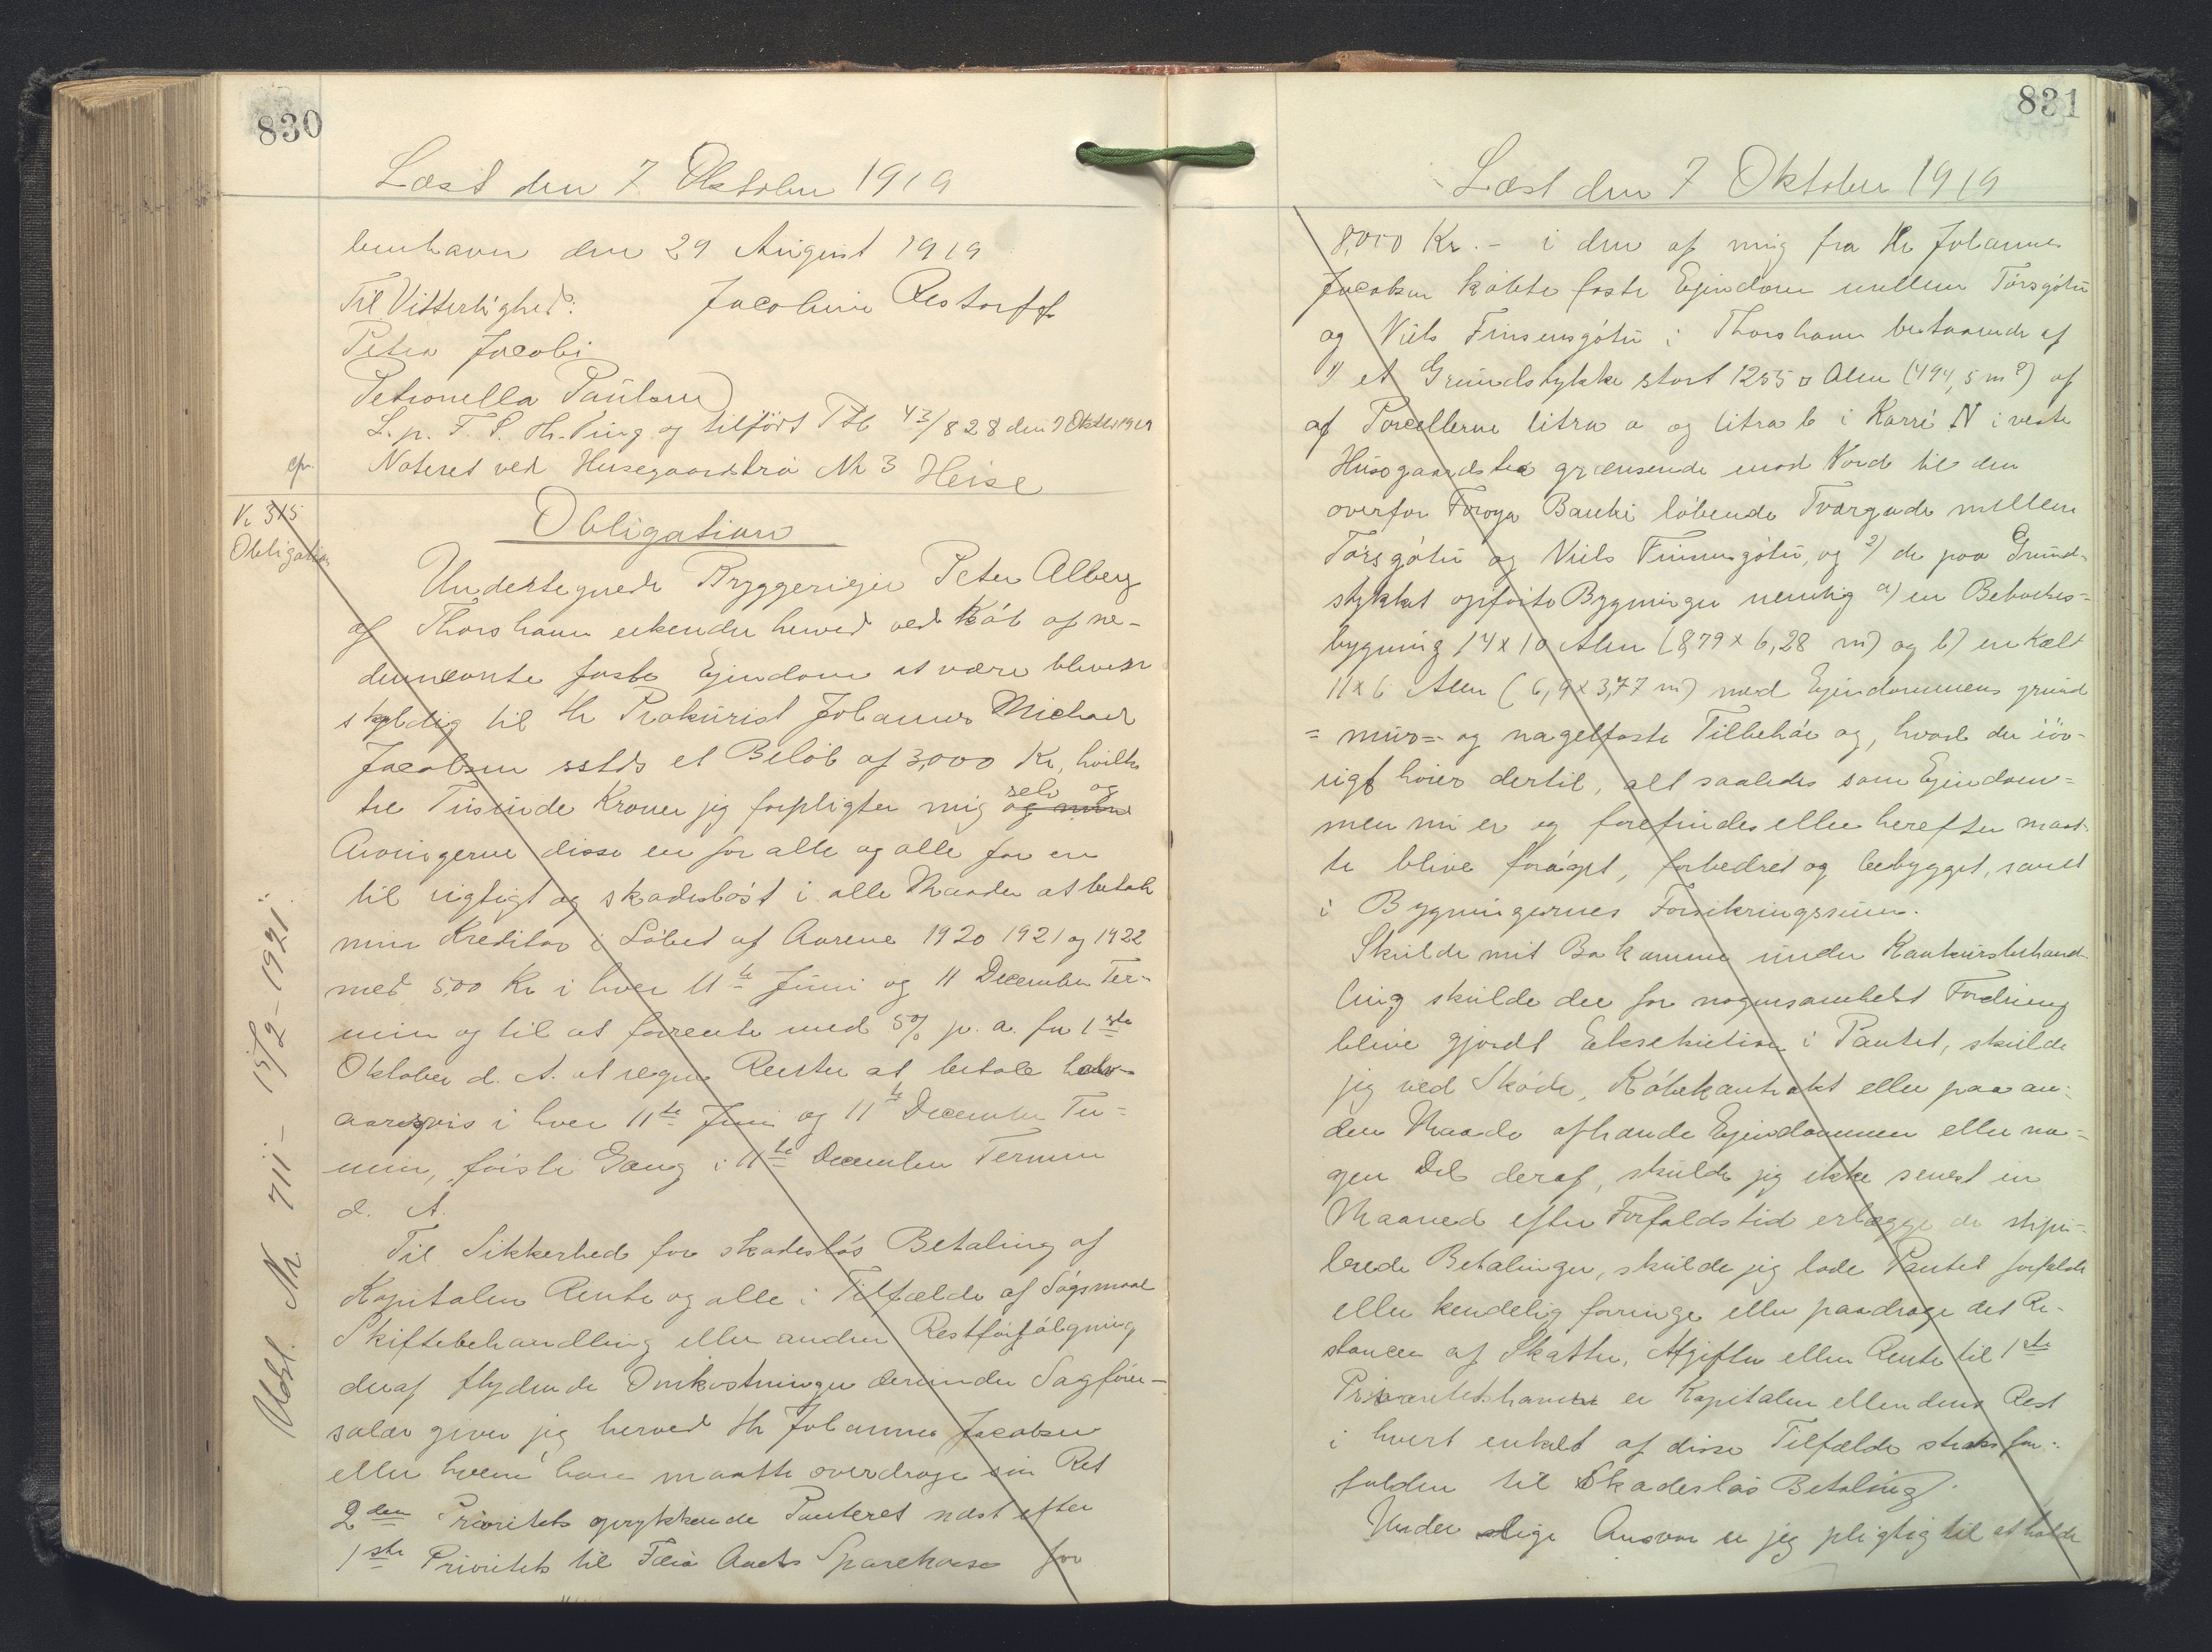 830
Læst den 7 Oktober 1919
benhavn den 29 August 1919
Til Vitterlighed: Jacobine Restorff
Petra Jacobi
Petronella Paulsen
L. p. F. S. Th. Ting og tilført Ptb 43/828 den 7 Oktbr 1919
Noteret ved Husegaardstrø Nr 3 Heise
Nr 315
Obligation
Udsl. Nr 711 - 15/2 - 1921.
Obligation
Undertegnede Byggerieier Peter Alberg
af Thorshavn erkender herved ved Køb af ne-
dennævnte faste Ejendom at være bleven
skyldig til Hr Prokurist Johannes Michael
Jacobsen sstds et Beløb af 3,000 Kr, hvilke
tre Tusinde Kroner jeg forpligter mig selv og
og mine
Arvingerne disse en for alle og alle for en
til rigtigt og skadesløst i alle Maader at betale
min Kreditor i Løbet af Aarene 1920 1921 og 1922
med 500 Kr i hver 11te Juni og 11 December Ter-
min og til at forrente med 5% p. a. fra 1ste
Oktober d. A. at regne Renter at betale halv-
aarsvis i hver 11te Juni og 11te December Ter=
min, første Gang i 11te December Termin
d. A.
Til Sikkerhed for skadesløs Betaling af
Kapitalen Rente og alle i Tilfælde af Søgsmaal
Skiftebehandling eller anden Restforfølgning
deraf flydende Omkostninger derunder Sagfører-
salær giver jeg herved Hr Johannes Jacobsen
eller hvem han maatte overdrage sin Ret
2den Prioritets oprykkende Panteret næst efter
1ste Prioritets til Færø Amts Sparekasse for
831
Læst den 7 Oktober 1919
8,000 Kr. - i den af mig fra Hr Johannes
Jacobsen købte faste Ejendom mellem Tórsgøtu
og Niels Finsensgøtu i Thorshavn bestaaende af
1) et Grundstykke stort 1255 □ Alen (494,5 m²) af
af Parcellerne litra a og litra b i Karré N i vestre
Husegaardstrø grænsende mod Nord til den
overfor Føroya Banki løbende Tværgade mellem
Tórsgøtu og Niels Finsensgøtu, og 2) de paa Grund-
stykket opførte Bygninger nemlig a) en Beboelses=
bygning 14 x 10 Alen (8,79 x 6,28 m) og b) en Kælt
11 x 6 Alen (6,9 x 3,77 m) med Ejendommens grund
= mur= og nagelfaste Tilbehør og, hvad der iøv-
rigt hører dertil, alt saaledes som Ejendom=
men nu er og forefindes eller herefter maat-
te blive forøget, forbedret og bebygget, samt
i Bygningernes Forsikringssum.
Skulde mit Bo komme under Konkursbehand-
ling skulde der for nogensomhelst Fordring
blive gjordt Eksekution i Pantet, skulde
jeg ved Skøde, Købekontrakt eller paa an=
den Maade afhænde Ejendommen eller no=
gen Del deraf, skulde jeg ikke senest en
Maaned efter Forfaldstid erlægge de stipu=
lerede Betalinger, skulde jeg lade Pantet forfalde
eller kendelig forringe eller paadrage det Re-
stancer af Skatter, Afgifter eller Rente til 1ste
Prioritetshaver er Kapitalen eller dens Rest
i hvert enkelt af disse Tilfælde straks for=
falden til Skadesløs Betaling.
Under slige Ansvar er jeg pligtig til at holde